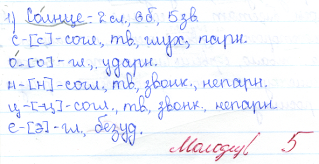 1) Солнце - 2 сл., 6 б., 5 зв.
с - [с] - согл., тв, глух., парн.
о - [о] - гл., ударн.
н - [н] - согл., тв, звонк., непарн.
ц - [ц] - согл., тв, звонк., непарн.
е - [э] - гл., безуд.
Молодец! 5